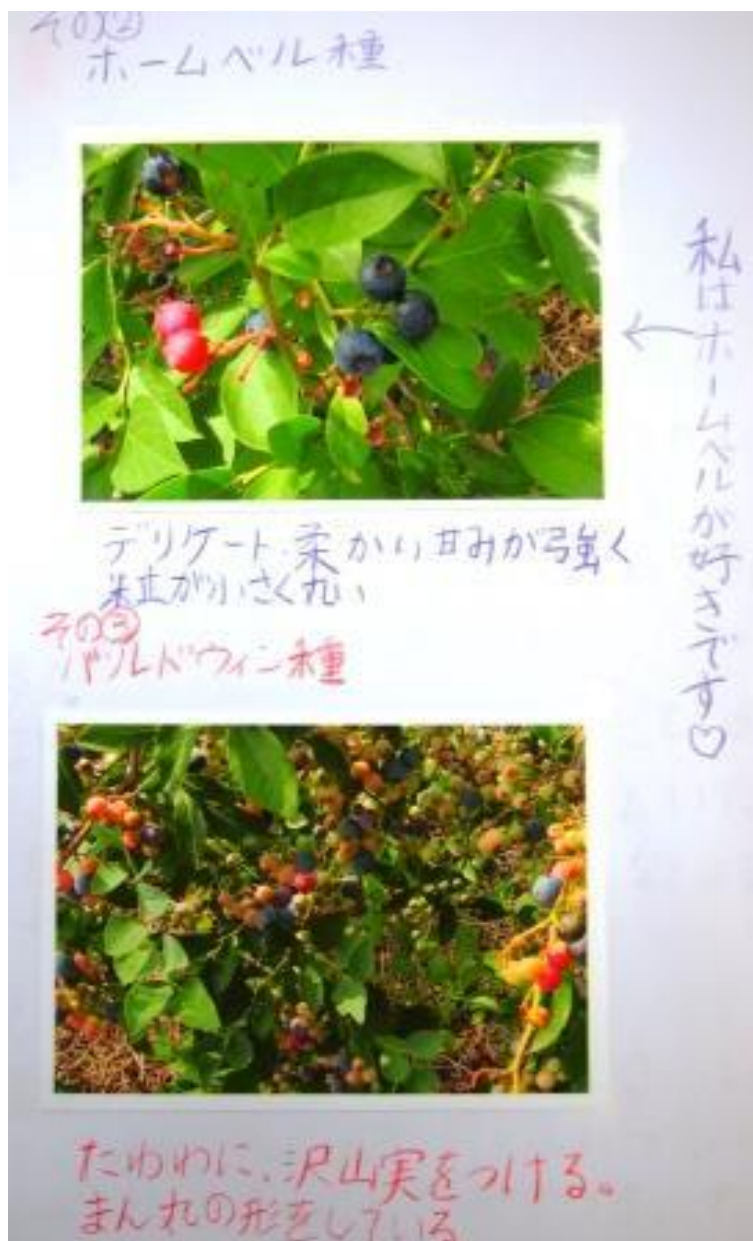 その②
ホームベル種
私はホームベルが好きです♡
デリケート、柔かい甘みが強く
粒が小さく丸い
その③
バルドウィン種
たわわに、沢山実をつける。
まん丸の形をしている